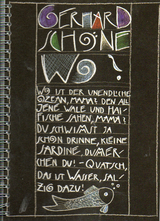 GERHARD
SCHÖNE
WO?
WO IST DER UNENDLICHE
OZEAN, MAMA? DEN ALLE
JENE WALE UND HAI-
FISCHE SAHEN, MAMA!
DU SCHWIMMST JA
SCHON DRINNE, KLEINE
SARDINE, DUMMER-
CHEN DU! - QUATSCH,
DAS IST WASSER, SAL-
ZIG DAZU!